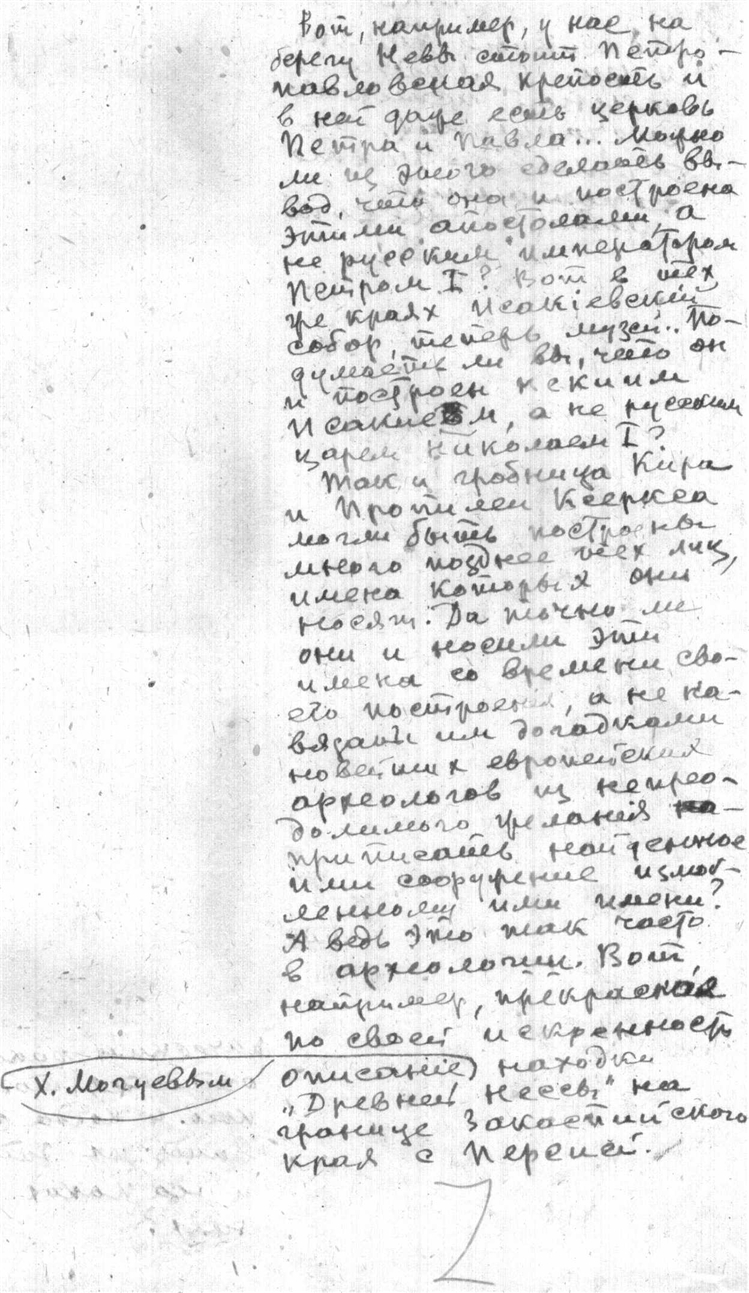 Вот, например, у нас, на
берегу Невы стоит Петро-
павловская крепость и
в ней даже есть церковь
Петра и Павла... Можно
ли из этого сделать вы-
вод, что она и построена
этими апостолами, а
не русским императором
Петром I? Вот в тех
же краях Исакіевский
собор, теперь музей... По-
думаете ли вы, что он
и построен неким
Исакием, а не русским
царем Николаем I?
Так и гробница Кира
и Пропилеи Ксеркса
могли быть построены
много позднее тех лиц,
имена которых они
носят. Да точно ли
они и носили эти
имена со времени сво-
его построения, а не на-
вязаны им догадками
новейших европейских
археологов из непрео-
долимого желания
приписать найденное
ими сооружение излюб-
ленному ими имени?
А ведь это так часто
в археологии. Вот,
например, прекрасное
по своей искренность
Х. Могуевым описаніе находки
„Древней Нессы" на
границе Закаспийского
края с Персией.